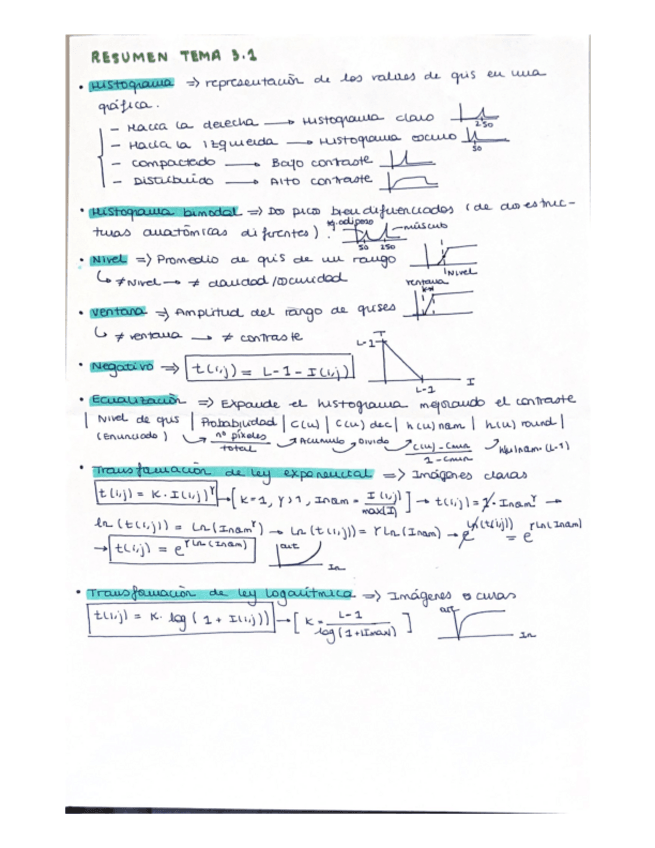 RESUMEN TEMA 3.1
• Histograma => representación de los valores de gris en una
gráfica.
- Hacia la derecha → Histograma claro
250
- Hacia la izquierda → Histograma oscuro
50
- Compactado → Bajo contraste
- Distribuido → Alto contraste
• Histograma bimodal => Dos picos bien diferenciados (de dos estruc-
turas anatómicas diferentes).
tej. adiposo
músculo
50 250
• Nivel => Promedio de gris de un rango
↳ ≠ Nivel → ≠ claridad/oscuridad
Nivel
• Ventana => Amplitud del rango de grises
↳ ≠ ventana → ≠ contraste
ventana
• Negativo => t(i,j) = L-1-I(i,j)
L-1 T
L-1 I
• Ecualización => Expande el histograma mejorando el contraste
| Nivel de gris | Probabilidad | C(u) | C(u) dec | h(u) norm | h(u) round |
(Enunciado) nº píxeles / total → Acumulo → Divido C(u) - Cmin / 1 - Cmin h(u) norm. (L-1)
• Transformación de ley exponencial => Imágenes claras
t(i,j) = K · I(i,j)^γ → [K=1, γ>1, Inorm = I(i,j) / max(I)] → t(i,j) = 1 · Inorm^γ →
ln(t(i,j)) = Ln(Inorm^γ) → Ln(t(i,j)) = γ Ln(Inorm) → e^Ln(t(i,j)) = e^γLn(Inorm)
→ t(i,j) = e^γLn(Inorm)
out
In
• Transformación de ley logarítmica => Imágenes oscuras
t(i,j) = K · log(1 + I(i,j)) → [K = L-1 / log(1+|Imax|)]
out
In